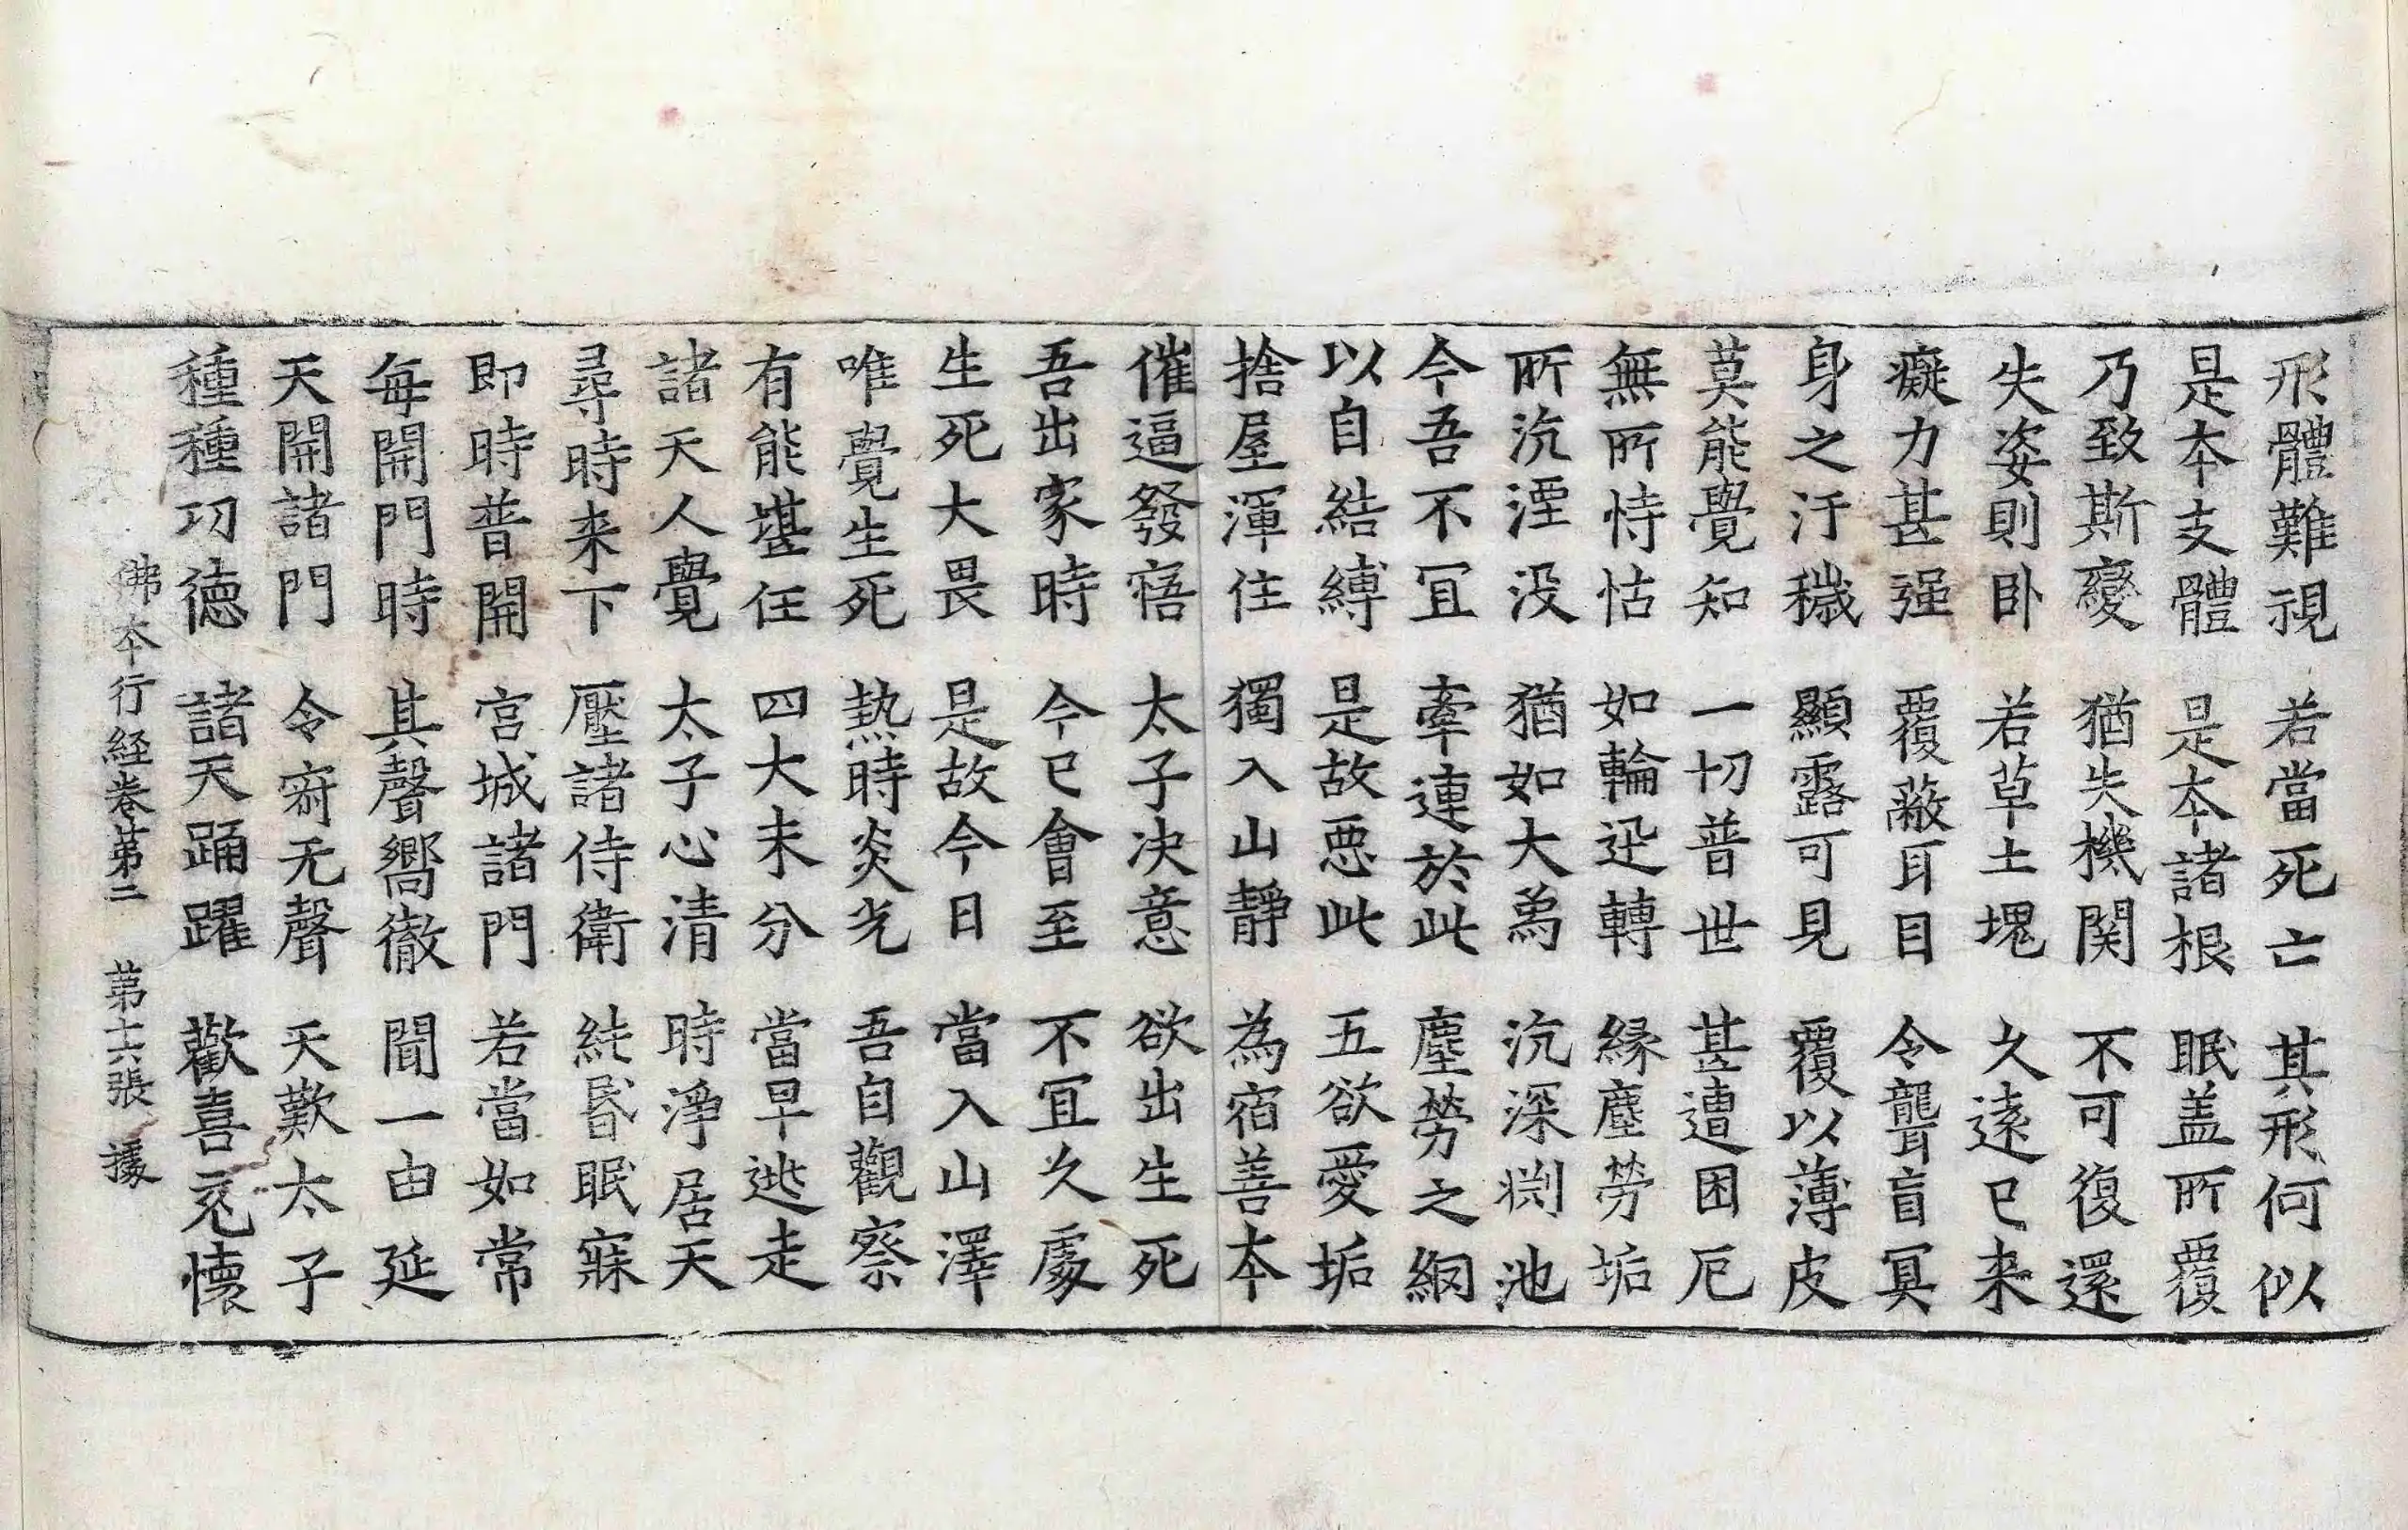 形體難視 若當死亡 其形何似
是本支體 是本諸根 眠盖所覆
乃致斯變 猶失機関 不可復還
失姿則卧 若草土塊 久逺已来
癡力甚强 覆蔽耳目 令聾盲冥
身之汙穢 顯露可見 覆以薄皮
莫能覺知 一切普世 甚遭困厄
無所恃怙 如輪迅轉 縁塵勞垢
所沉湮没 猶如大爲 沉深渕池
今吾不冝 牽連於此 塵勞之網
以自結縛 是故惡此 五欲愛垢
捨屋渾住 獨入山靜 為宿善本
催逼發寤 太子决意 欲出生死
吾出家時 今已會至 不冝久處
生死大畏 是故今日 當入山澤
唯覺生死 熱時炎光 吾自觀察
有能堪任 四大未分 當早逃走
諸天人覺 太子心清 時淨居天
尋時来下 壓諸侍衛 純昬眠寐
即時普開 宮城諸門 若當如常
每開門時 其聲嚮徹 聞一由延
天開諸門 令𡧯无聲 天歎太子
種種功德 諸天踊躍 歡喜充懷
佛本行経卷苐二 苐十六張 據